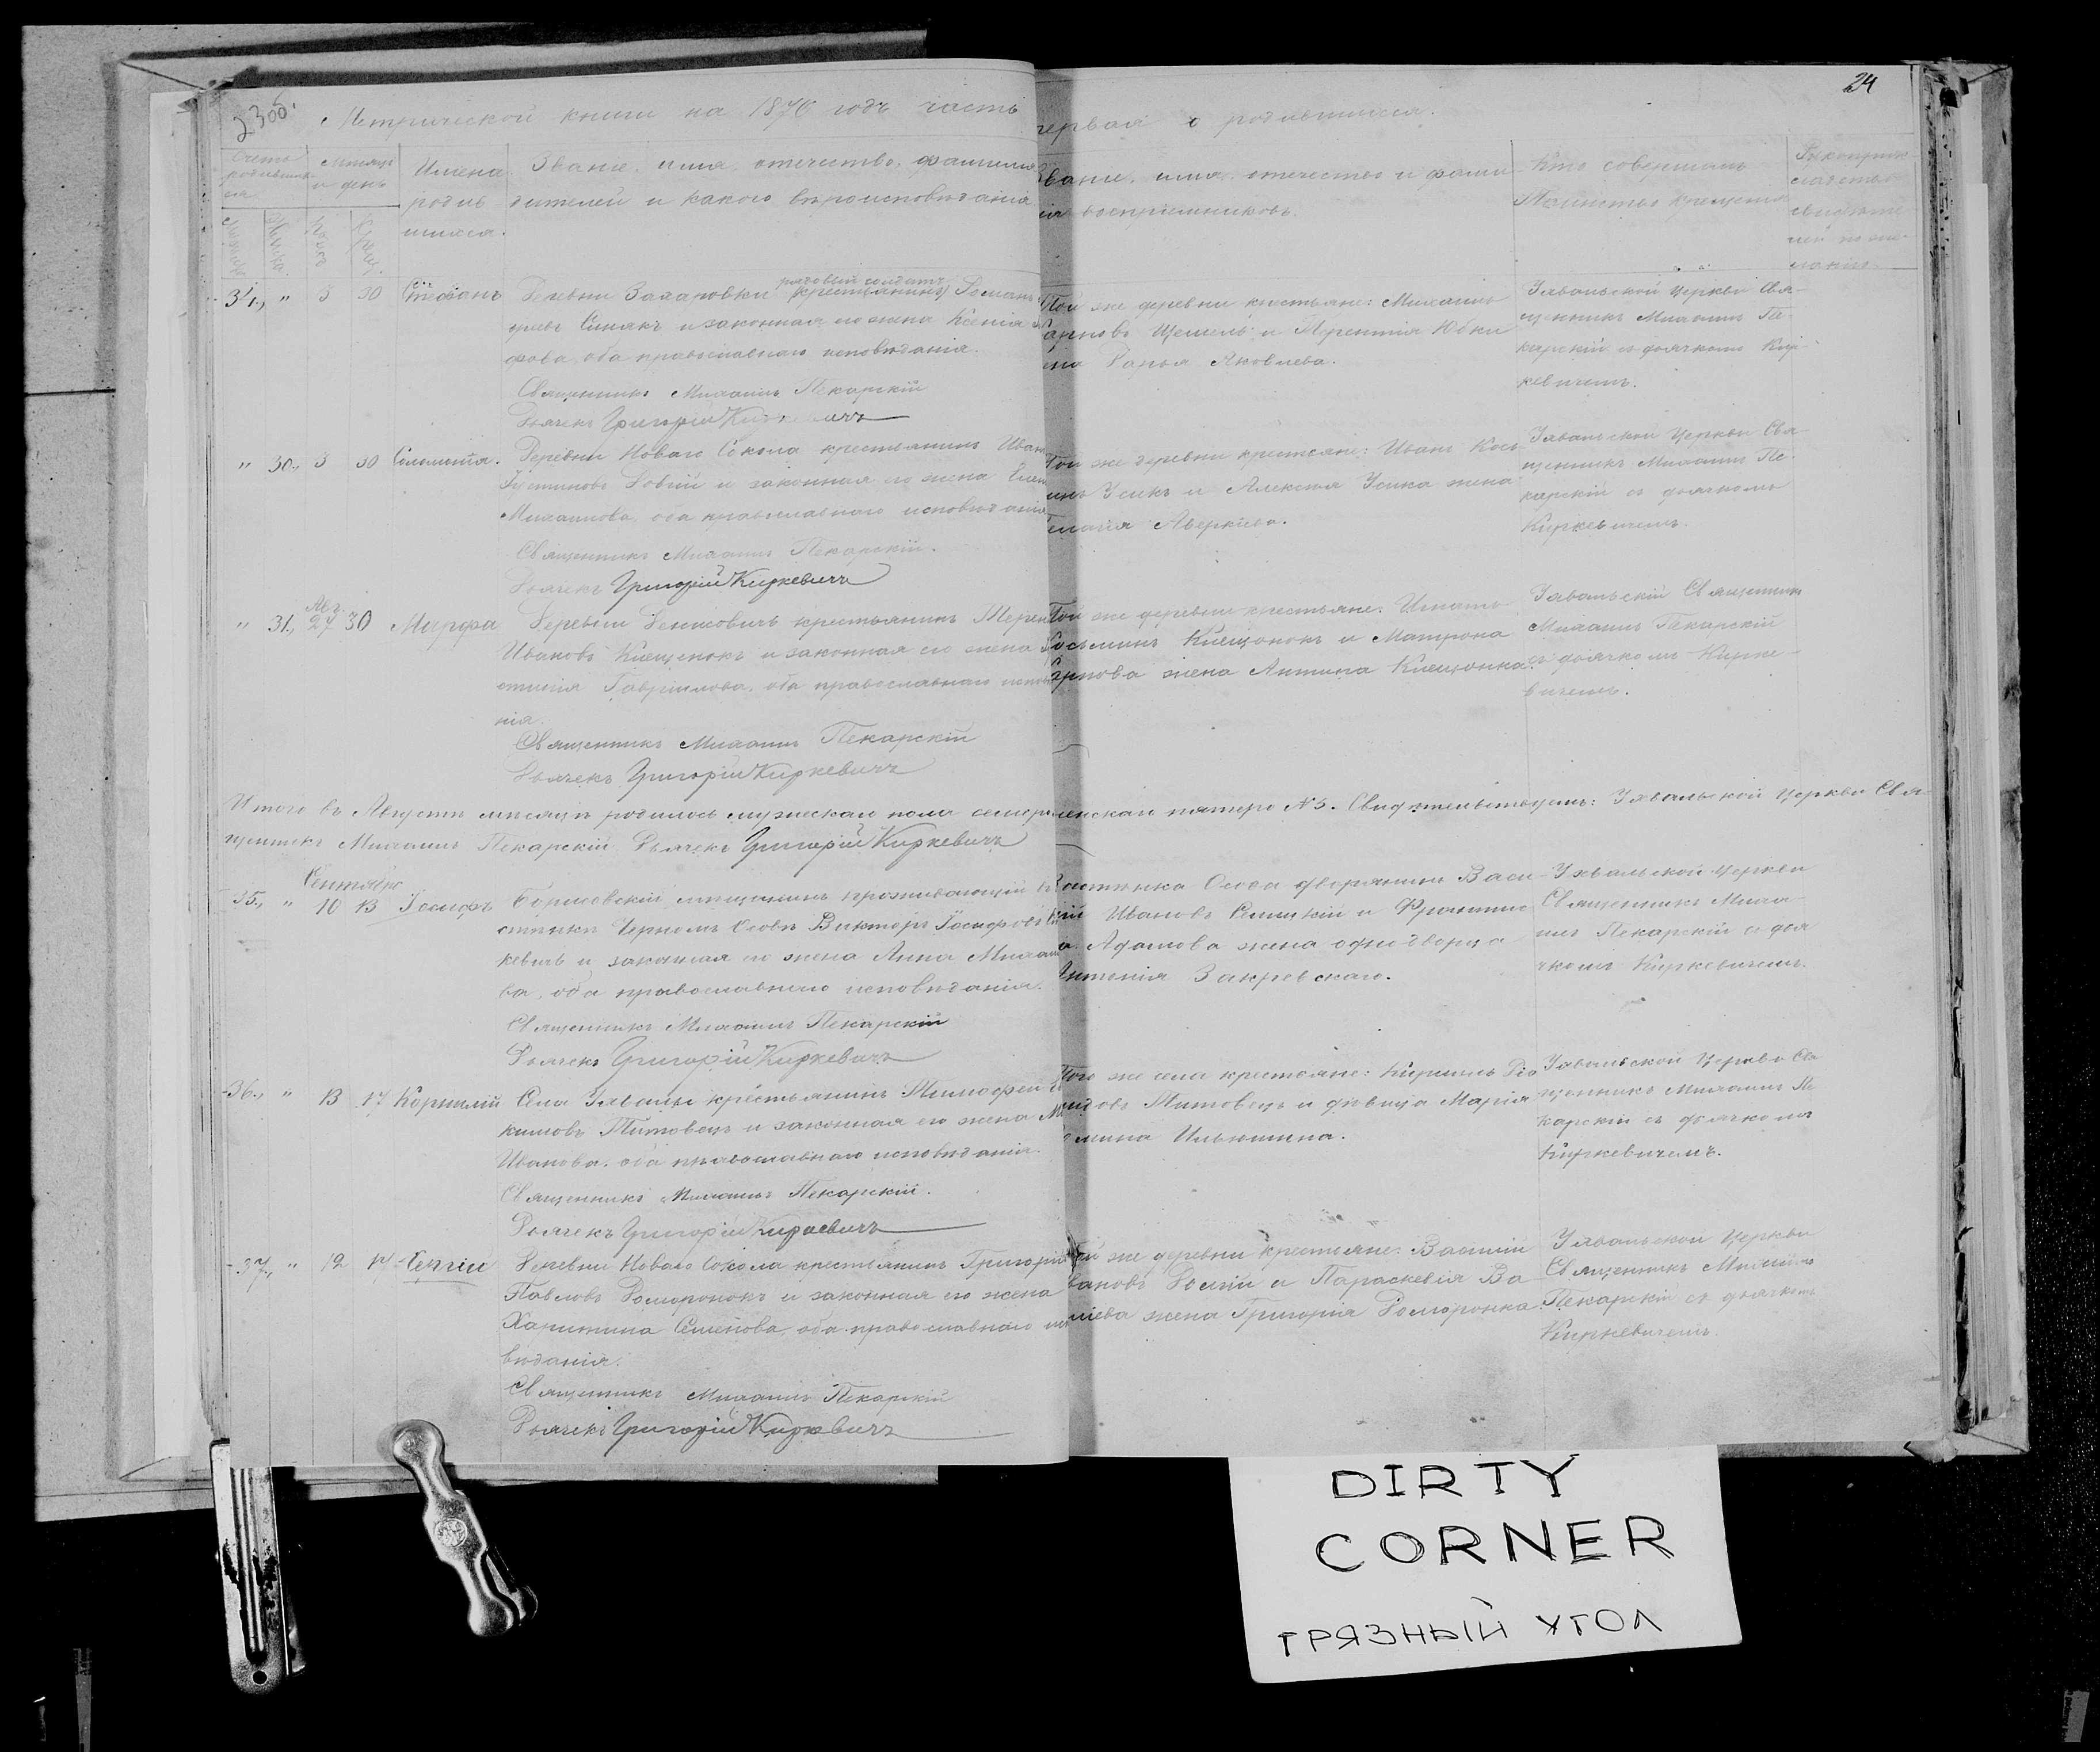 24
Метрической книги на 1876 годъ часть первая о родившихся.
Счетъ родившихся
Мѣсяцъ и день
Имена родившихся.
Званіе, имя, отчество, фамилія
дителей и какого вѣроисповѣданія
Званіе, имя, отчество и фами
лія воспріемниковъ.
Кто совершалъ
Таинство крещенія
34., " 3 30 Стефанъ
Деревни Захаровки рядовый солдатъ Романъ
законная его жена Ксенія
фова, оба православнаго исповѣданія.
Священникъ Михаилъ Пекарскій
Дьячекъ Григорій Киркевичъ
Той же деревни крестьяне: Михаилъ
Карповъ и Терентія Юбки
жена Дарья Яковлева.
Ухвальской церкви Свя-
щенникъ Михаилъ Пе-
карскій съ дьячкомъ Кир-
кевичемъ.
" 30., 3 30 Соломонія.
Деревни Новаго Сокола крестьянинъ Иванъ
Іустиновъ и законная его жена
Михаилова, оба православнаго исповѣданія
Священникъ Михаилъ Пекарскій.
Дьячекъ Григорій Киркевичъ
Той же деревни крестьяне: Иванъ
Усикъ и Алексѣя Усика жена
Аверкіева.
Ухвальской церкви Свя-
щенникъ Михаилъ Пе-
карскій съ дьячкомъ
Киркевичемъ.
" 31., Авг. 27 30 Марфа
Деревни Денисовичъ крестьянинъ Терен
Ивановъ Клещенокъ и законная его жена
Гаврилова, оба православнаго исповѣда
нія.
Священникъ Михаилъ Пекарскій
Дьячекъ Григорій Киркевичъ
Той же деревни крестьяне: Игнатъ
Косьминъ Клещонокъ и Матрона
Карпова жена Антипа Клещонка.
Ухвальскій Священникъ
Михаилъ Пекарскій
съ дьячкомъ Кирке-
вичемъ.
Итого въ Августѣ мѣсяцѣ родилось мужескаго пола семеро женскаго пятеро №5. Свидѣтельствуемъ: Ухвальской церкви Свя-
щенникъ Михаилъ Пекарскій Дьячекъ Григорій Киркевичъ
Сентябрь
35., " 10 13 Іосифъ
Борисовскій мѣщанинъ проживающій въ
Черномъ Осовѣ Викторъ Іосифовъ
кевичъ и законная его жена Анна Михаило
ва, оба православнаго исповѣданія.
Священникъ Михаилъ Пекарскій
Дьячекъ Григорій Киркевичъ
Осова дворянинъ Васи
лій Ивановъ и Францис
ка Адамова жена однодворца
Антонія Закревскаго.
Ухвальской церкви
Священникъ Миха-
илъ Пекарскій съ дья
чкомъ Киркевичемъ.
36., " 13 17 Корнилій
Села Ухвалы крестьянинъ Тимофей
кимовъ Титовецъ и законная его жена
Иванова, оба православнаго исповѣданія.
Священникъ Михаилъ Пекарскій.
Дьячекъ Григорій Киркевичъ
Того же села крестьяне: Кириллъ
Титовецъ и дѣвица Марія
Ильюшина.
Ухвальской церкви Свя
щенникъ Михаилъ Пе
карскій съ дьячкомъ
Киркевичемъ.
37., " 12 17 Сергій
Деревни Новаго Сокола крестьянинъ Григорій
Павловъ Доморонокъ и законная его жена
Харитина Семенова, оба православнаго испо
вѣданія.
Священникъ Михаилъ Пекарскій
Дьячекъ Григорій Киркевичъ
Той же деревни крестьяне: Василій
Ивановъ и Параскевія Ва
силіева жена Григорія Доморонка.
Ухвальской церкви
Священникъ Михаилъ
Пекарскій съ дьячкомъ
Киркевичемъ.
DIRTY
CORNER
ГРЯЗНЫЙ УГОЛ